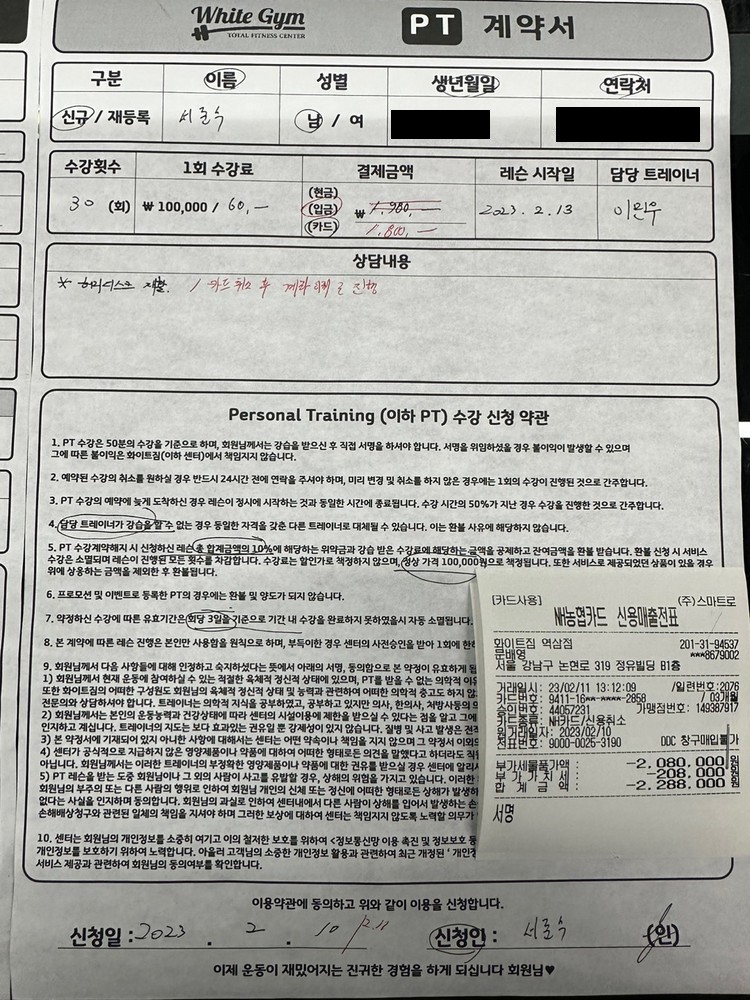 White Gym
TOTAL FITNESS CENTER
PT 계약서
구분 이름 성별 생년월일 연락처
신규 / 재등록 남 / 여
수강횟수 1회 수강료 결제금액 레슨 시작일 담당 트레이너
30 (회) ₩ 100,000 / 60,- (현금) (입금) (카드) ₩ 1,980,- 1,800,- 2023. 2. 13 이민우
상담내용
* 허리디스크 재활. / 카드 취소 후 계좌이체로 진행
Personal Training (이하 PT) 수강 신청 약관
1. PT 수강은 50분의 수강을 기준으로 하며, 회원님께서는 강습을 받으신 후 직접 서명을 하셔야 합니다. 서명을 위임하셨을 경우 불이익이 발생할 수 있으며
그에 따른 불이익은 화이트짐(이하 센터)에서 책임지지 않습니다.
2. 예약된 수강의 취소를 원하실 경우 반드시 24시간 전에 연락을 주셔야 하며, 미리 변경 및 취소를 하지 않은 경우에는 1회의 수강이 진행된 것으로 간주합니다.
3. PT 수강의 예약에 늦게 도착하신 경우 레슨이 정시에 시작하는 것과 동일한 시간에 종료됩니다. 수강 시간의 50%가 지난 경우 수강을 진행한 것으로 간주합니다.
4. 담당 트레이너가 강습을 할 수 없는 경우 동일한 자격을 갖춘 다른 트레이너로 대체될 수 있습니다. 이는 환불 사유에 해당하지 않습니다.
5. PT 수강계약해지 시 신청하신 레슨 총 합계금액의 10%에 해당하는 위약금과 강습 받은 수강료에 해당하는 금액을 공제하고 잔여금액을 환불 받습니다. 환불 신청 시 서비스
수강은 소멸되며 레슨이 진행된 모든 횟수를 차감합니다. 수강료는 할인가로 책정하지 않으며, 정상 가격 100,000원으로 책정됩니다. 또한 서비스로 제공되었던 상품이 있을 경우
위에 상응하는 금액을 제외한 후 환불됩니다.
6. 프로모션 및 이벤트로 등록한 PT의 경우에는 환불 및 양도가 되지 않습니다.
7. 약정하신 수강에 따른 유효기간은 회당 3일을 기준으로 기간 내 수강을 완료하지 못하였을시 자동 소멸됩니다.
8. 본 계약에 따른 레슨 진행은 본인만 사용함을 원칙으로 하며, 부득이한 경우 센터의 사전승인을 받아 1회에 한하
9. 회원님께서 다음 사항들에 대해 인정하고 숙지하셨다는 뜻에서 아래의 서명, 동의함으로 본 약정이 유효하게 됩
1) 회원님께서 현재 운동에 참여하실 수 있는 적절한 육체적 정신적 상태에 있으며, PT를 받을 수 없는 의학적 이유
또한 화이트짐의 어떠한 구성원도 회원님의 육체적 정신적 상태 및 능력과 관련하여 어떠한 의학적 충고도 하지 않
전문의와 상담하셔야 합니다. 트레이너는 의학적 지식을 공부하고, 공부하고 있지만 의사, 한의사, 처방사등의 의
2) 회원님께서는 본인의 운동능력과 건강상태에 따라 센터의 시설이용에 제한을 받으실 수 있다는 점을 알고 그에
인지하고 계십니다. 트레이너의 지도는 보다 효과있는 권유일 뿐 강제성이 있지 않습니다. 질병 및 사고 발생은 전적
3) 본 약정서에 기재되어 있지 아니한 사항에 대해서는 센터는 어떤 약속이나 책임을 지지 않으며 그 약정서 이외의
4) 센터가 공식적으로 지급하지 않은 영양제품이나 약품에 대하여 어떠한 형태로든 의견을 말했다고 하더라도 직
아닙니다. 회원님께서는 이러한 트레이너의 부정확한 영양제품이나 약품에 대한 권유를 받으실 경우 센터에 알리셔
5) PT 레슨을 받는 도중 회원님이나 그 외의 사람이 사고를 유발할 경우, 상해의 위험을 가지고 있습니다. 이러한
회원님의 부주의 또는 다른 사람의 행위로 인하여 회원님 개인의 신체 또는 정신에 어떠한 형태로든 상해가 발생하
없다는 사실을 인지하며 동의합니다. 회원님의 과실로 인하여 센터내에서 다른 사람이 상해를 입어서 발생하는 손
손해배상청구와 관련된 일체의 책임을 지셔야 하며 그러한 보상에 대하여 센터는 책임지지 않도록 노력할 의무가
10. 센터는 회원님의 개인정보를 소중히 여기고 이의 철저한 보호를 위하여 <정보통신망 이용 촉진 및 정보보호 등
개인정보를 보호하기 위하여 노력합니다. 아울러 고객님의 소중한 개인정보 활용과 관련하여 최근 개정된 ' 개인정
서비스 제공과 관련하여 회원님의 동의여부를 확인합니다.
[카드사용] (주)스마트로
NH농협카드 신용매출전표
화이트짐 역삼점 201-31-94537
문배영 ***8679002
서울 강남구 논현로 319 정유빌딩 B1층
거래일시: 23/02/11 13:12:09 /일련번호:2076
카드번호: 9411-16**-****-2858 / 03개월
승인번호: 44057231 가맹점번호: 149387917
카드종류: NH카드/신용취소
원거래일자: 2023/02/10
전표번호: 9000-0025-3190 DDC 창구매입불가
부가세물품가액: -2,080,000 원
부 가 가 치 세: -208,000 원
합 계 금 액: -2,288,000 원
서명
이용약관에 동의하고 위와 같이 이용을 신청합니다.
신청일 : 2023 . 2 . 10 신청인 : (인)
이제 운동이 재밌어지는 진귀한 경험을 하게 되십니다 회원님♥